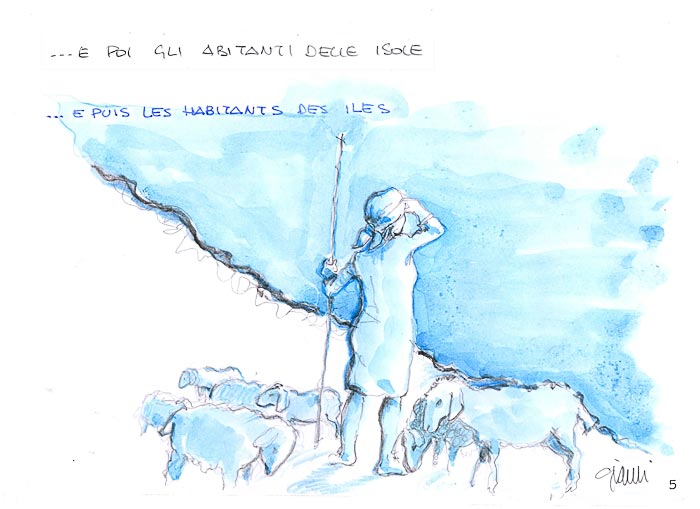 ... E POI GLI ABITANTI DELLE ISOLE
... E PUIS LES HABITANTS DES ILES
gianni
5